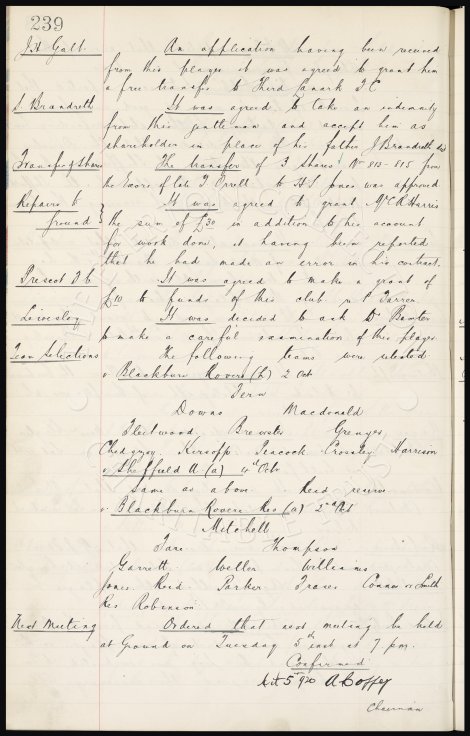 239
J. H. Galt. An application having been received
from this player it was agreed to grant him
a free transfer to Third Lanark F C
S. Brandreth It was agreed to take an indemnity
from this gentleman and accept him as
shareholder in place of his father J Brandreth
Transfer of Shares The transfer of 3 shares Nos 813-815 from
the Exors of late T Orrell to H S Jones was approved
Repairs to It was agreed to grant Mr C R Harris
Ground } the sum of £30 in addition to his account
for work done, it having been reported
that he had made an error in his contract.
Prescot F C. It was agreed to make a grant of
£10 to funds of this club
Lievesley It was decided to ask Dr Baxter
to make a careful examination of this player
Team Selections The following teams were selected
v Blackburn Rovers (h) 2 Oct
Fern
Downs Macdonald
Fleetwood Brewster Grenyer
Chedgzoy Kirsopp Peacock Crossley Harrison
v Sheffield U (a) 4th Oct
Same as above. Reid reserve
v. Blackburn Rovers Res (a) 2nd Oct
Mitchell
Fare Thompson
Garrett Weller Williams
Jones Reid Parker Fraser Connor or Smith
Res Robinson
Next Meeting Ordered that next meeting be held
at Ground on Tuesday 5th inst at 7 pm.
Confirmed
Oct 5th 920 A Coffey
Chairman